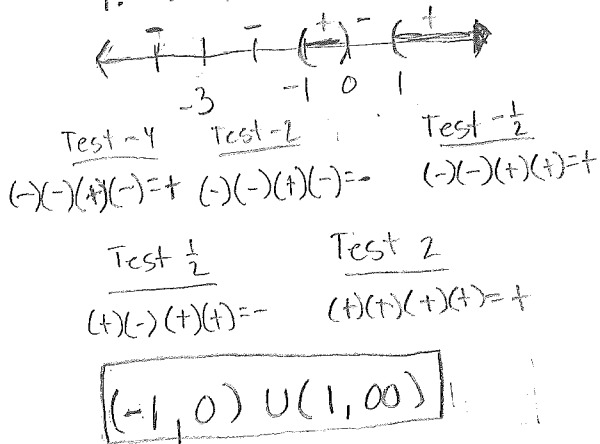 - - + - +
-3 -1 0 1
Test -4 Test -2 Test -1/2
(-)(-)(+)(-)=+ (-)(-)(+)(-)=- (-)(-)(+)(+)=+
Test 1/2 Test 2
(+)(-)(+)(+)=- (+)(+)(+)(+)=+
(-1,0) U (1,∞)